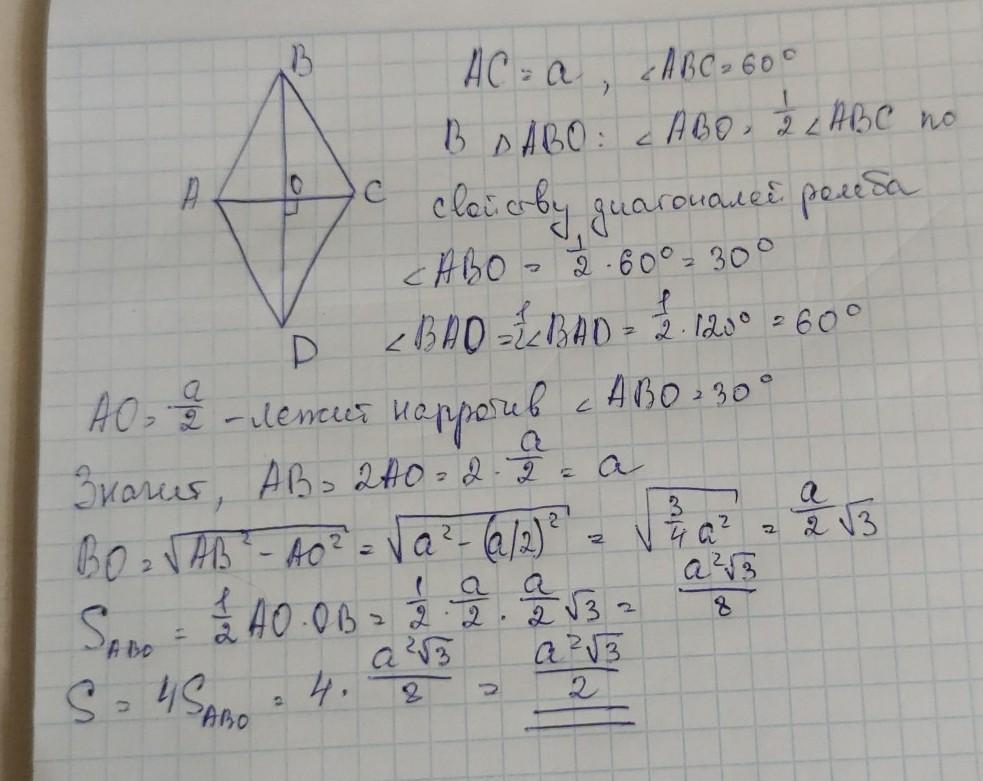 B
A
O
C
D
AC = a, ∠ABC = 60°
В △ABO: ∠ABO = 1/2 ∠ABC по
свойству диагоналей ромба
∠ABO = 1/2 · 60° = 30°
∠BAO = 1/2 ∠BAD = 1/2 · 120° = 60°
AO = a/2 - лежит напротив ∠ABO = 30°
Значит, AB = 2AO = 2 · a/2 = a
BO = √(AB² - AO²) = √(a² - (a/2)²) = √(3/4 a²) = a/2 √3
S_ABO = 1/2 AO · OB = 1/2 · a/2 · a/2 √3 = a²√3/8
S = 4S_ABO = 4 · a²√3/8 = a²√3/2